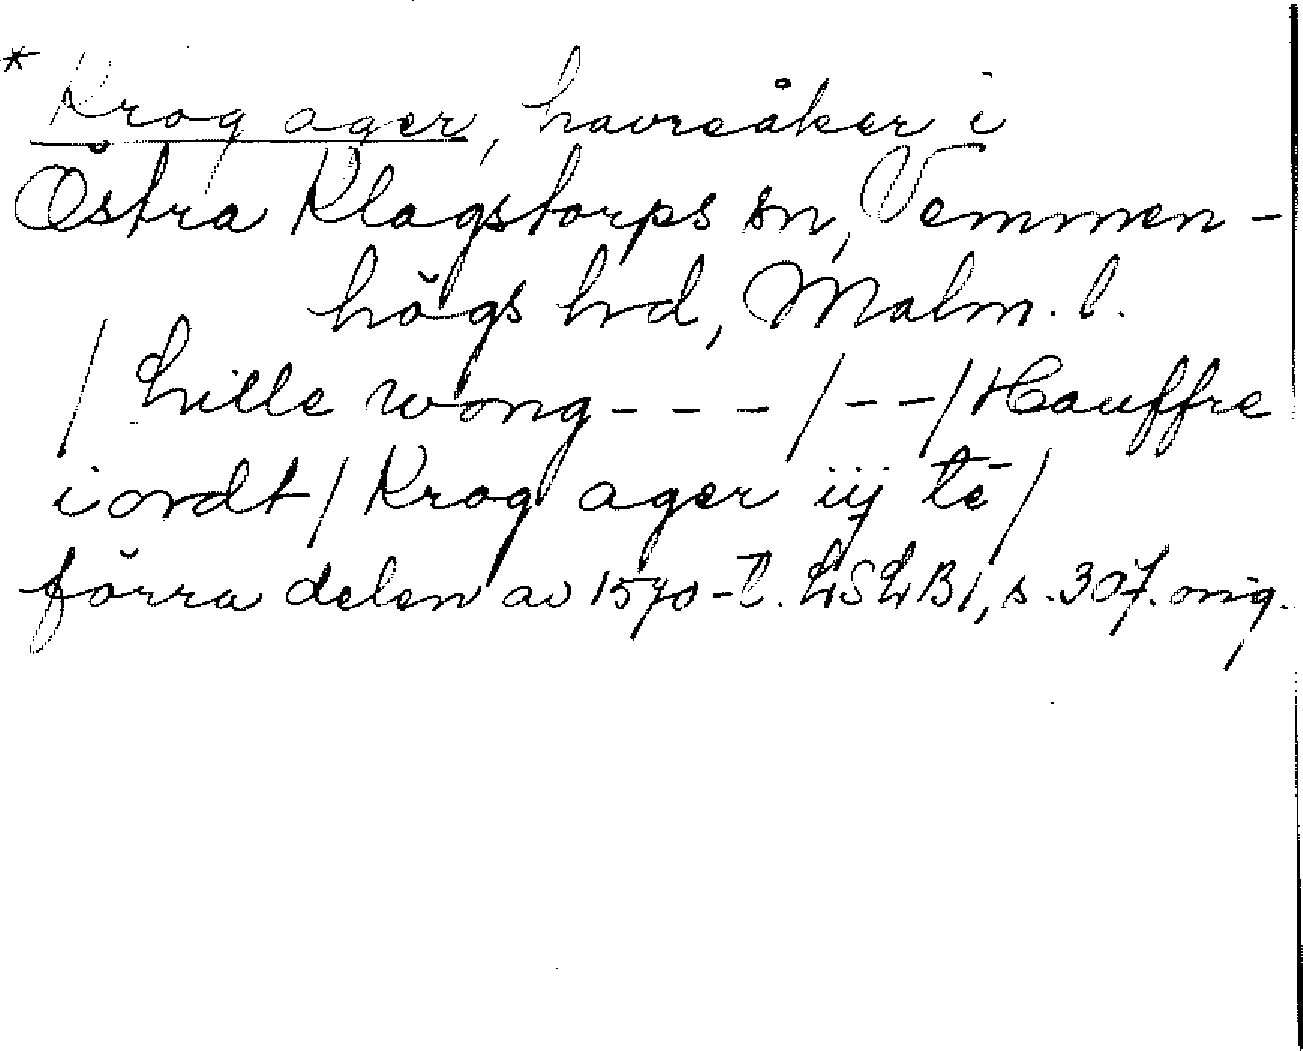 * Krog ager, havreåker i
Östra Klagstorps sn, Vemmen-
högs hrd, Malm. l.
/ Lille wong - - - / - - / Hauffre
iordt / Krog ager iij tē /
förra delen av 1570-t. LSLB 1, s. 307. orig.